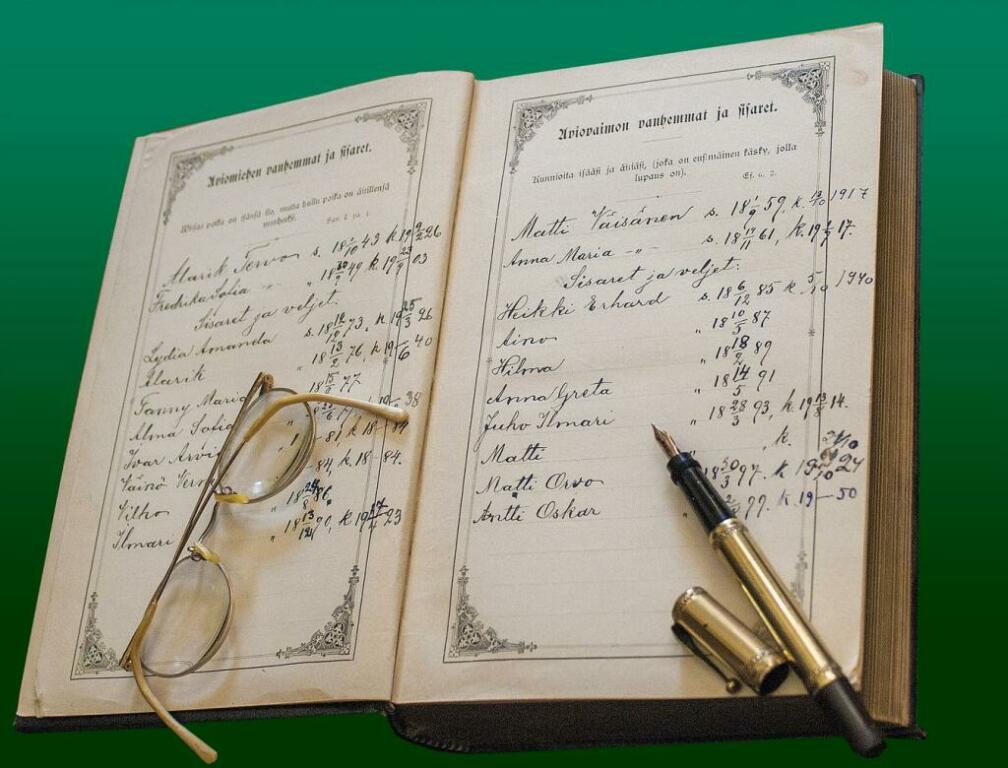 Aviomiehen vanhemmat ja sisaret.
Wiisas poika on isänsä ilo, mutta hullu poika on äitillensä
murheeksi. San. 1
Alarik Tervo s. 18 1/10 43 k 19 9/2 26
Fredrika Sofia -"- " 18 49 k. 19 23/9 03
Sisaret ja veljet.
Lydia Amanda s. 18 73, k 19 25/3 26
Alarik " 18 13/2 76, k 19 –/6 40
Fanny Maria 18 15/ 77
Alma Sofia 38
Ivar Arvi – 81 k 18 – 84
Väinö – 84, k. 18 – 84.
Vilho 18 86.
Ilmari " 18 13/12 90, k 19 23
Aviovaimon vanhemmat ja sisaret.
Kunnioita isääsi ja äitiäsi, (joka on ensimäinen käsky, jolla
lupaus on). Ef. 6. 2.
Matti Väisänen s. 18 1/9 59, k. 13/10 1917
Anna Maria -"- s. 18 17/11 61, k. 19 17.
Sisaret ja veljet:
Heikki Erhard s. 18 6/12 85 k. 5/10 1940
Aino " 18 10/5 87
Hilma " 18 18/2 89
Anna Greta " 18 14/5 91
Juho Ilmari " 18 28/3 93, k. 19 13/8 14.
Matti " , k.
Matti Orvo 18 30/3 97. k 19
Antti Oskar " 99. k 19 – 50